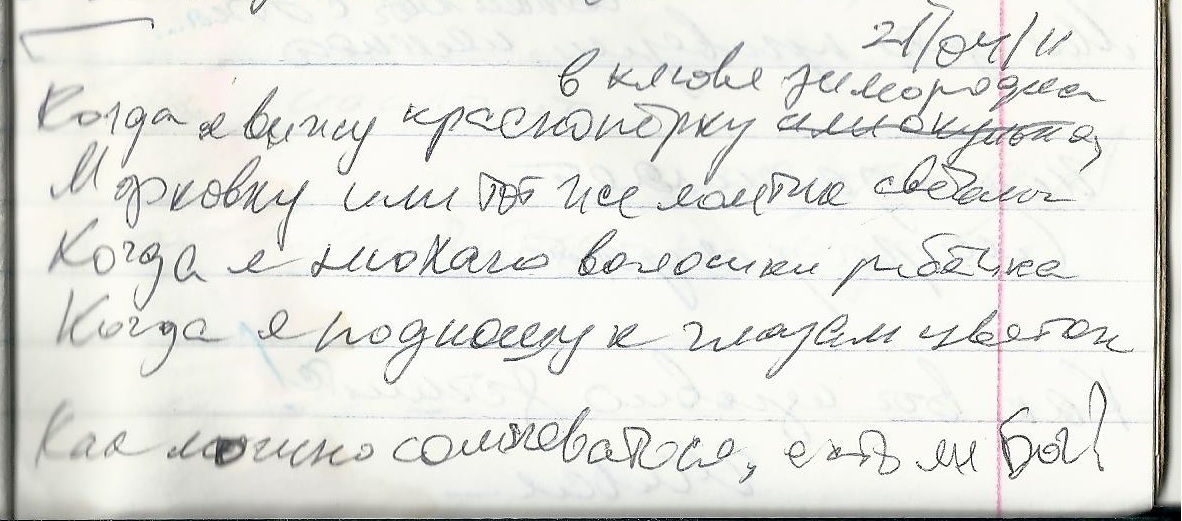 21/04/11
в клюве зимородка
Когда я вижу краснопёрку или окунька,
Морковку или тот же ломтик свёклы
Когда я нюхаю волосики ребёнка
Когда я подношу к глазам цветок
Как можно сомневаться, есть ли Бог?